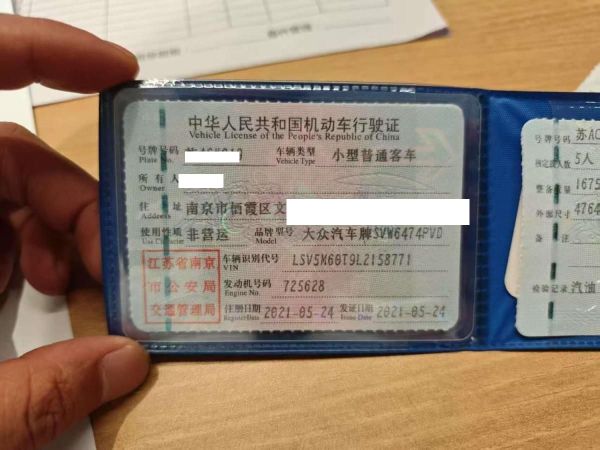 中华人民共和国机动车行驶证
Vehicle License of the People's Republic of China
号牌号码
Plate No.
车辆类型 小型普通客车
Vehicle Type
所有人
Owner
住 址 南京市栖霞区文
Address
使用性质 非营运 品牌型号 大众汽车牌SVW6474PVD
Use Character Model
江苏省南京
市公安局
交通管理局
车辆识别代号 LSV5M60T9L2158771
VIN
发动机号码 725628
Engine No.
注册日期 2021-05-24 发证日期 2021-05-24
Register Date Issue Date
号牌号码 苏AC
核定载人数 5人
整备质量 1675
外廓尺寸 4764
检验记录 汽油